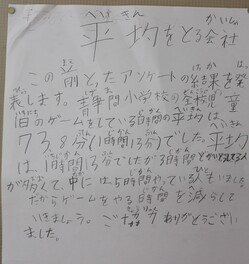 平均をとる会社
へいきん かいしゃ
この前とったアンケートの結果を発
表します。青葉間小学校の全校児童
1日のゲームをしている時間の平均は
73.8分(1時間13分)でした。平均
は1時間13分でしたが3時間とかやってる人
が多くて、中には5時間やっている人もいました
だからゲームをやる時間を減らして
いきましょう。ご協力ありがとうござい
ました。